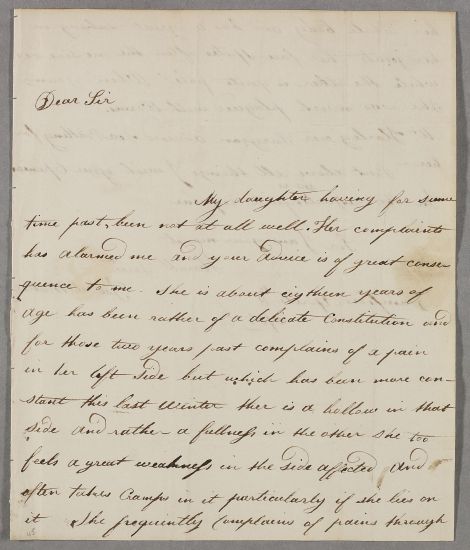 Dear Sir
My daughter having for some
time past, been not at all well. Her complaints
has alarmed me and your advice is of great conse-
quence to me. She is about eigtheen years of
age has been rather of a delicate Constitution and
for those two years past complains of a pain
in her left side but which has been more con-
stant this last Winter ther is a hollow in that
side and rather a fullness in the other she too
feels a great weakness in the side affected and
often takes Cramps in it particularly if she lies on
it She frequently Complains of pains through